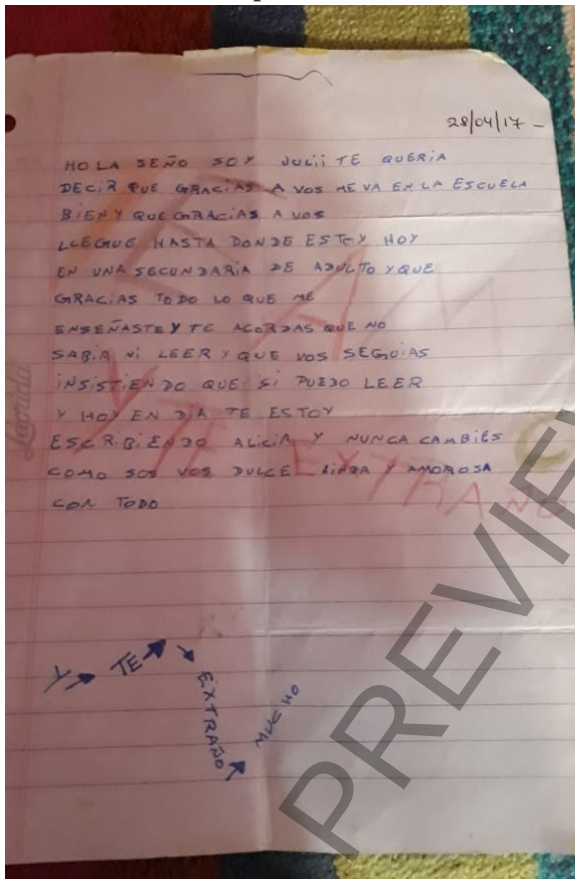 28/04/17 -
HOLA SEÑO SOY JULii TE QUERiA
DECiR QUE GRACiAS A VOS ME VA EN LA ESCUELA
BiEN Y QUE GRACiAS A VOS
LLEGUE HASTA DONDE ESTOY HOY
EN UNA SECUNDARiA DE ADULTO Y QUE
GRACiAS TODO LO QUE ME
ENSEÑASTE Y TE ACORDAS QUE NO
SABiA Ni LEER Y QUE VOS SEGUiAS
iNSiSTiENDO QUE Si PUEDO LEER
Y HOY EN DiA TE ESTOY
ESCRiBiENDO ALiCiA Y NUNCA CAMBiES
COMO SOS VOS DULCE LiNDA Y AMOROSA
CON TODO
TE AM
Y TE EXTRAÑO
Y TE EXTRAÑO MUCHO
PREVIE